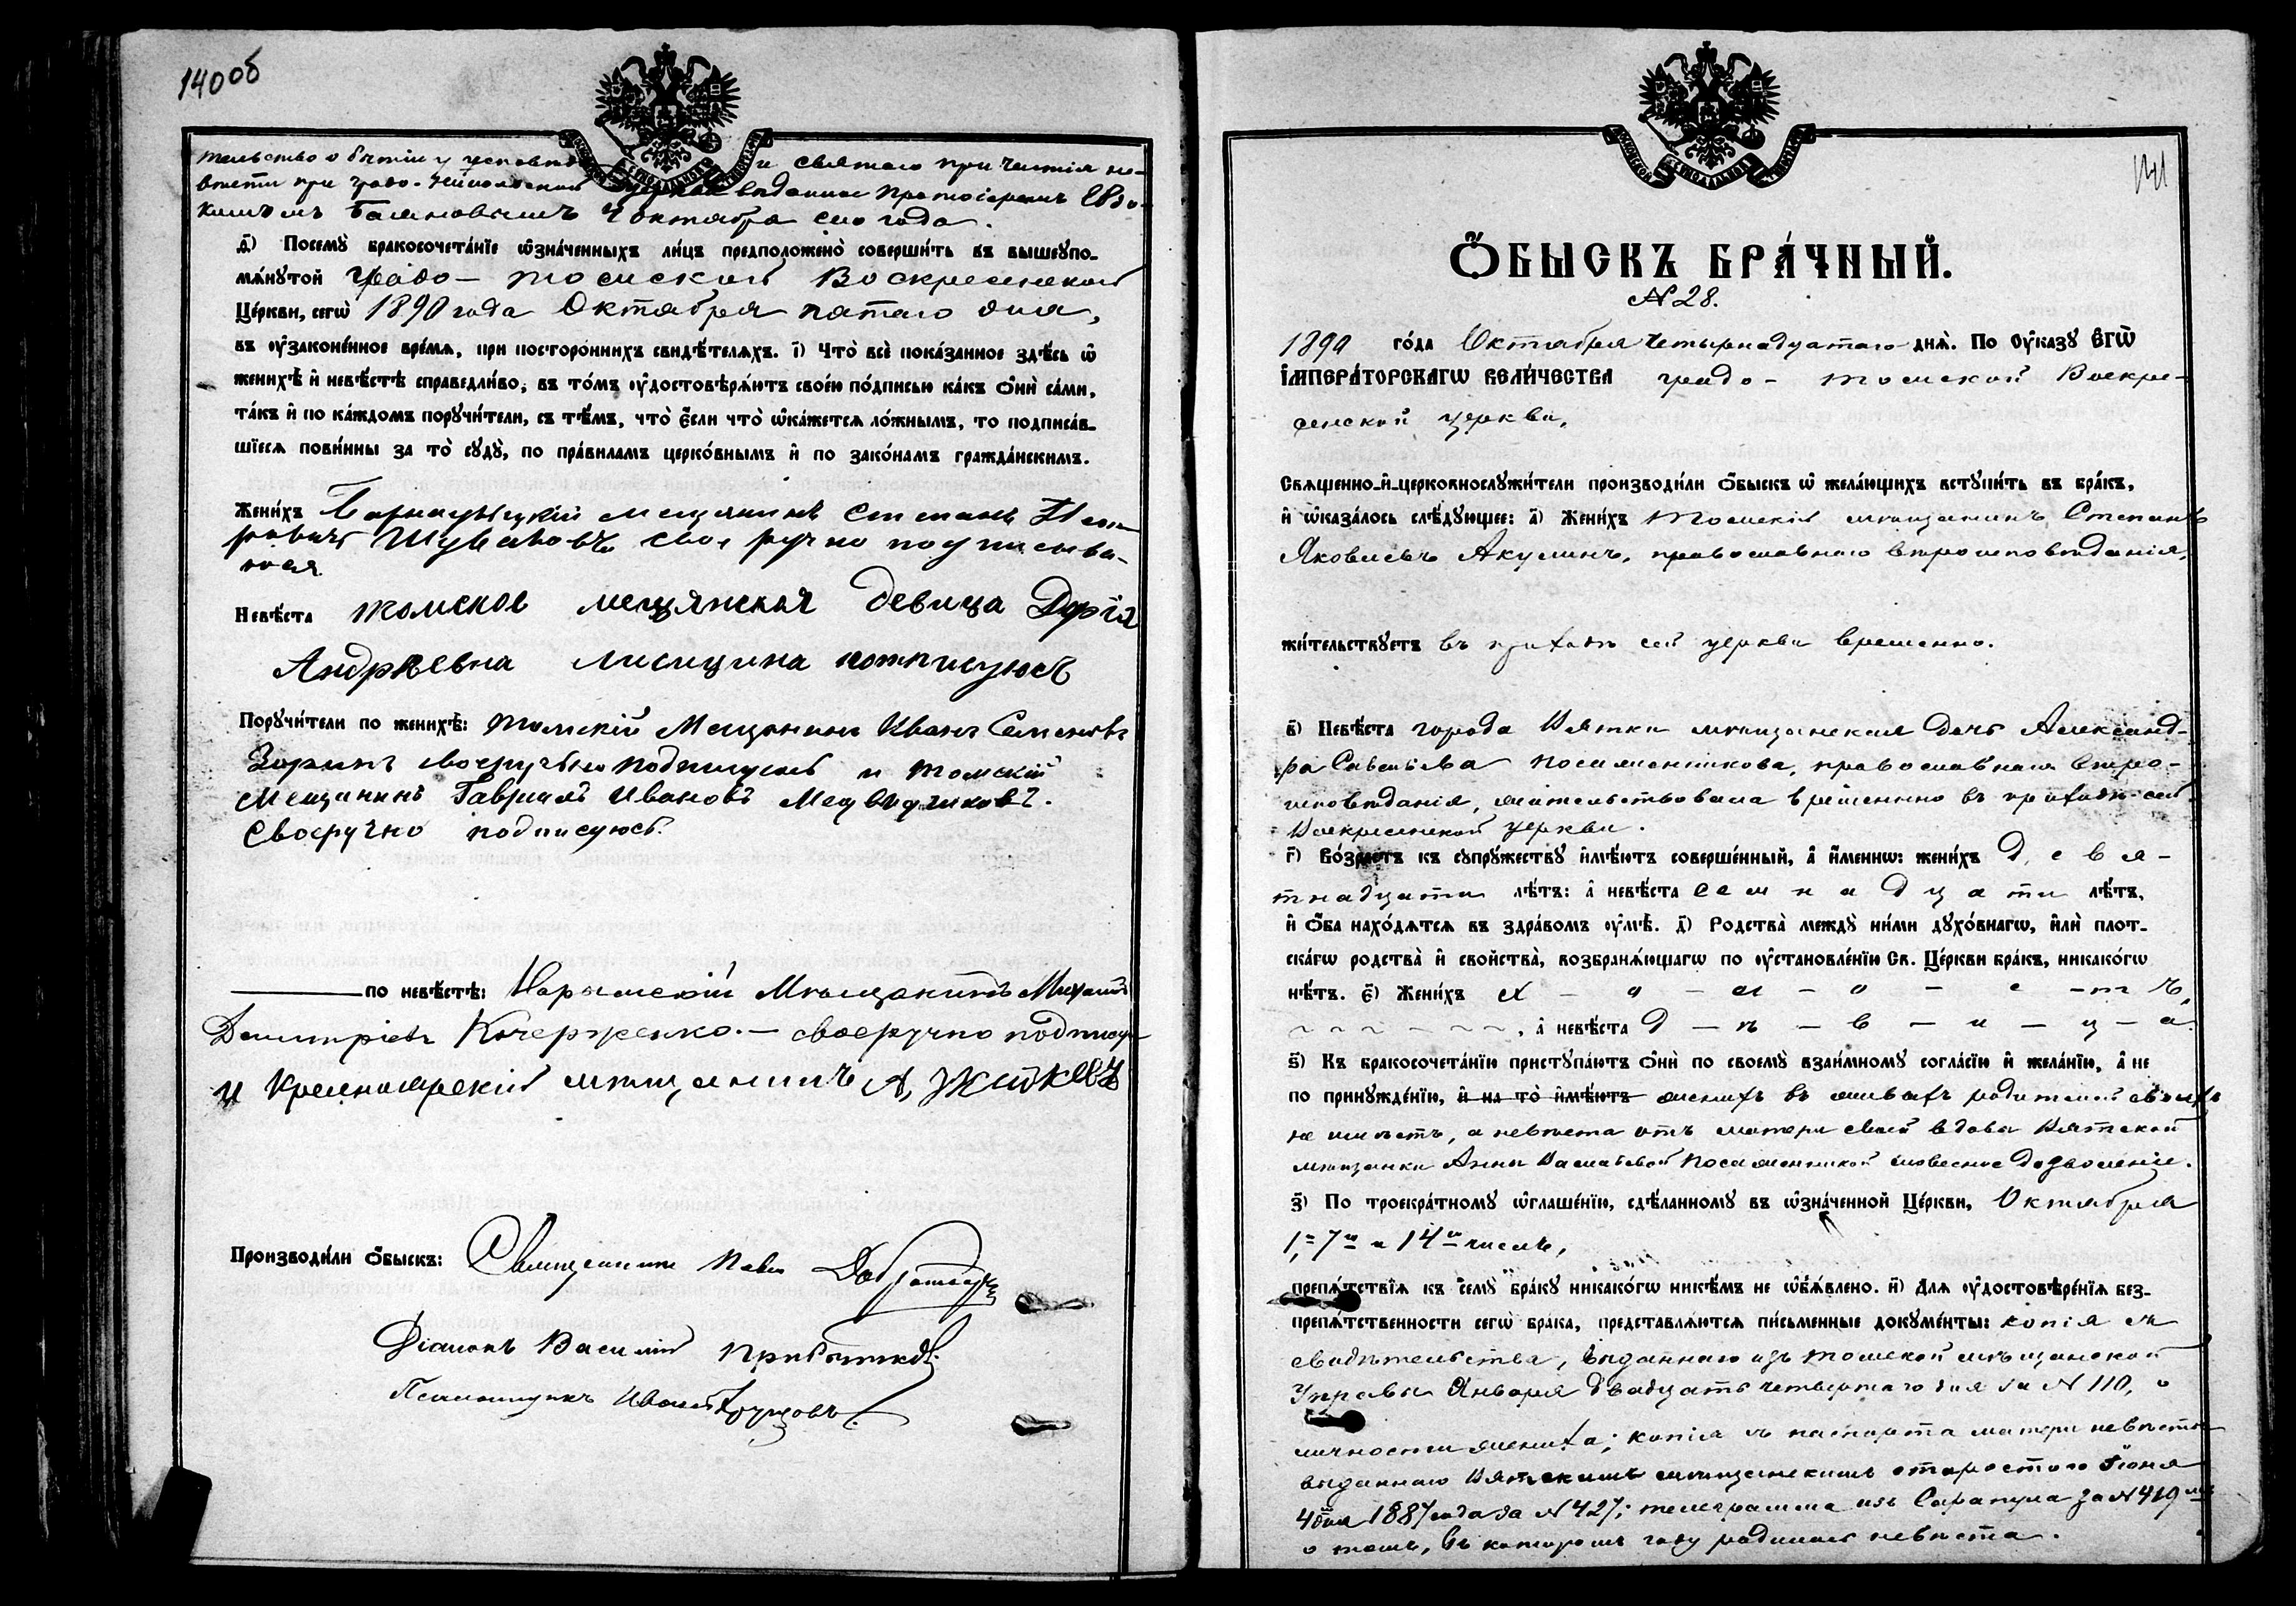 140 об
тельство о бытіи у исповеди и святаго причастія не-
весты при градо-Никольской церкви выданное Протоіереемъ Евѳи-
4 октября сего года.
д҃і) Посемꙋ̀ бракосочета́нїе ѡ҆зна́ченныхъ ли́цъ предположено̀ соверши́ть въ вышеꙋпо-
мѧ́нꙋтой градо- томской Воскресенской
Це́ркви, сегѡ̀ 1890 года Октября пятаго дня,
въ ᲂу҆законе́нное вре́мѧ, при посторо́ннихъ свидѣ́телѧхъ. і҃) Что̀ всѐ пока́занное здѣ́сь ѡ҆
женихѣ̀ и҆ невѣ́стѣ справедли́во, въ то́мъ ᲂу҆достовѣрѧ́ютъ свое́ю по́дписью ка́къ ѻ҆нѝ са́ми,
та́къ и҆ по ка́ждомъ порꙋчи́тели, съ тѣ́мъ, что̀ є҆́сли что̀ ѡ҆ка́жетсѧ ло́жнымъ, то подписа́в-
шїесѧ пови́нны за то̀ сꙋдꙋ̀, по пра́виламъ церко́внымъ и҆ по зако́намъ гражда́нскимъ.
Жени́хъ Барнаульскій мещанинъ Степанъ Пет-
ровичъ Шуваловъ свое ручно подписыва-
юся
Невѣ́ста томскоя мещянская девица Дарія
Андрѣевна Лисицина потписуюсь
Порꙋчи́тели по женихѣ̀: томскій Мещанинъ Иванъ Семеновъ
Зоринъ своеручно подписуюсь и томскій
Мещанинъ Гаврилъ Ивановъ
Своеручно подписуюсь.
по невѣ́стѣ: Нарымскій Мѣщанинъ Михаилъ
Димитріевъ Кочерженко. — своеручно подпису
и Красноярскій мѣщанинъ А, Житковъ
Производи́ли ѻ҆́быскъ: Священникъ Павелъ
Діаконъ Василій Прибытковъ.
Псаломщикъ Иванъ
141
Ѻ҆́БЫСКЪ БРА́ЧНЫЙ.
№ 28.
1890 го́да Октября четырнадцатаго днѧ̀. По Оу҆ка́зꙋ Є҆ГѠ̀
І҆МПЕРА́ТОРСКАГѠ ВЕЛИ́ЧЕСТВА градо- томской Воскре-
сенской церкви,
Свѧще́нно-и҆-церковнослꙋжи́тели производи́ли ѻ҆́быскъ ѡ҆ жела́ющихъ встꙋпи́ть въ бра́къ,
и҆ ѡ҆каза́лось слѣ́дꙋющее: а҃) Жени́хъ Томскій мѣщанинъ Степанъ
Яковлевъ Акулинъ, православнаго вѣроисповѣданія,
жи́тельствꙋетъ въ приходѣ сей церкви временно.
в҃) Невѣ́ста города Вятки мѣщанская дочь Александ-
ра Савельева Посаженникова, православнаго вѣро-
исповѣданія, жительствовала временно въ приходѣ сей
Воскресенской церкви.
г҃) Во́зрастъ къ сꙋпрꙋ́жествꙋ и҆мѣ́ютъ соверше́нный, а҆ и҆́меннѡ: жени́хъ д е в я-
тнадцати лѣ́тъ: а҆ невѣ́ста с е м н а д ц а т и лѣ́тъ,
и҆ ѻ҆́ба нахо́дѧтсѧ въ здра́вомъ ᲂу҆мѣ̀. д҃) Родства̀ междꙋ̀ ни́ми дꙋхо́внагѡ, и҆лѝ плот-
ска́гѡ родства̀ и҆ сво́йства̀, возбранѧ́ющагѡ по ᲂу҆становле́нїю Св. Це́ркви бра́къ, никако́гѡ
нѣ́тъ. є҃) Жени́хъ х – о – л – о – с – т ъ,
~ ~ ~ – ~ ~, а҆ невѣ́ста д – ѣ – в – и – ц – а.
ѕ҃) Къ бракосочета́нїю пристꙋпа́ютъ ѻ҆нѝ по своемꙋ̀ взаи́мномꙋ согла́сїю и҆ жела́нїю, а҆ не
по принꙋжде́нїю, и҆ на то̀ и҆мѣ́ютъ женихъ въ живыхъ родителей своихъ
не имѣетъ, а невѣста отъ матери своей вдовы Вятской
мѣщанки Анны Васильевой Посаженниковой словесное дозволеніе.
з҃) По троекра́тномꙋ ѡ҆глаше́нїю, сдѣ́ланномꙋ въ ѡ҆зна́ченной Це́ркви, Октября
1, 7го и 14го числъ,
препѧ́тствїѧ къ семꙋ̀ бра́кꙋ никако́гѡ никѣ́мъ не ѡ҆б̾ѧ́влено. и҃) Длѧ ᲂу҆достовѣре́нїѧ без-
препѧ́тственности сегѡ̀ бра́ка, представлѧ́ютсѧ пи́сьменные докꙋме́нты: копія съ
свидѣтельства, выданнаго изъ томской мѣщанской
Управы Января двадцать четвертаго дня за № 110, о
личности жениха; копія съ паспорта матери невѣсты
выданнаго Вятскимъ мѣщанскимъ старостою Іюня
4 дня 1887 года за № 427; телеграмма изъ Сарапула за № 419
о томъ, въ которомъ году родилась невѣста.